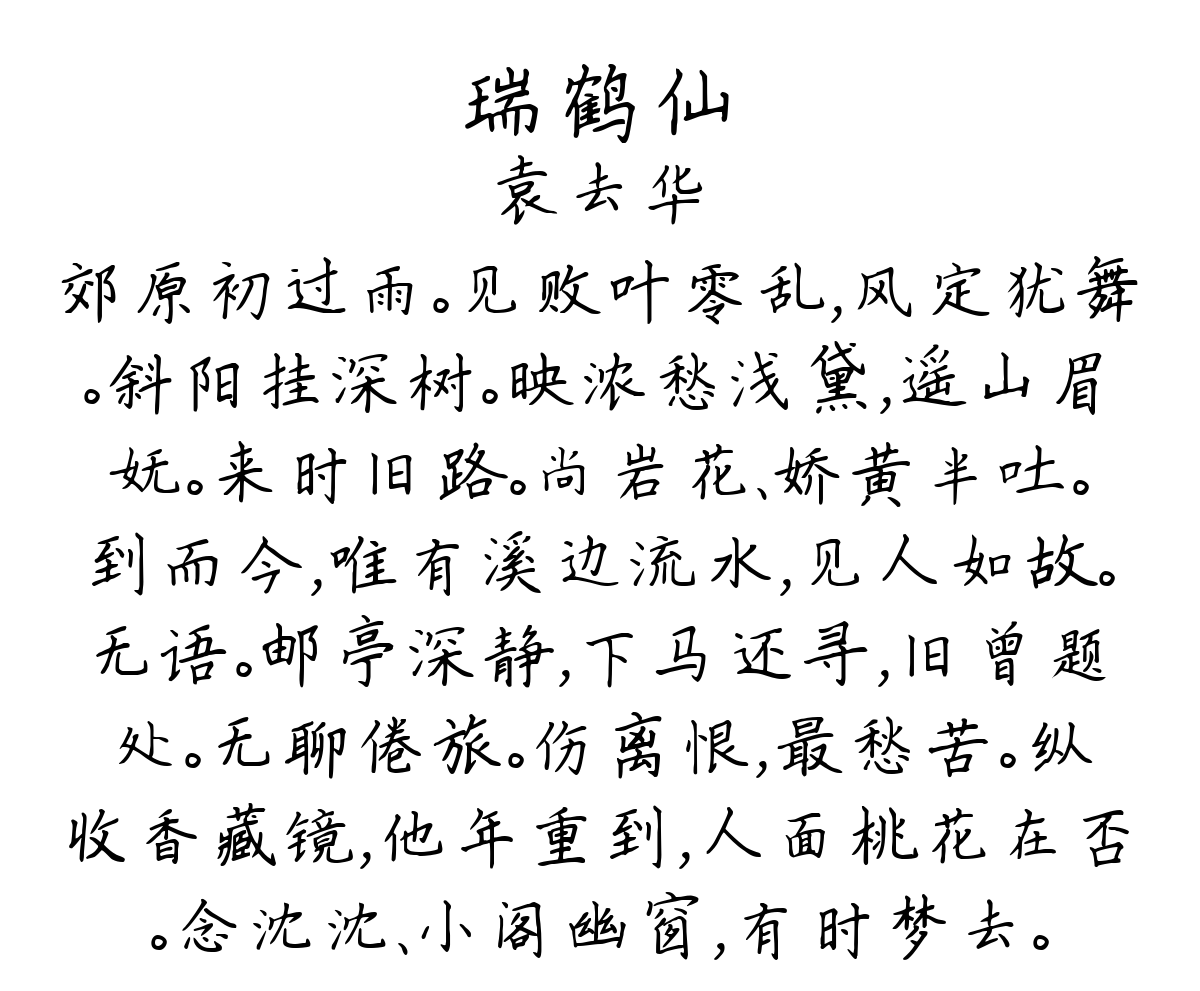 瑞鹤仙
袁去华
郊原初过雨。见败叶零乱,风定犹舞
。斜阳挂深树。映浓愁浅黛,遥山眉
妩。来时旧路。尚岩花、娇黄半吐。
到而今,唯有溪边流水,见人如故。
无语。邮亭深静,下马还寻,旧曾题
处。无聊倦旅。伤离恨,最愁苦。纵
收香藏镜,他年重到,人面桃花在否
。念沈沈、小阁幽窗,有时梦去。